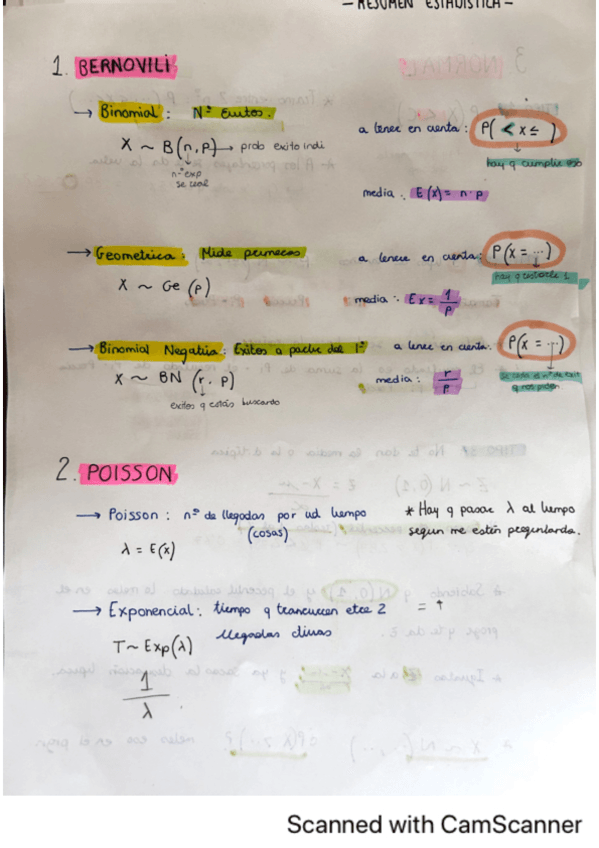 - RESUMEN ESTADÍSTICA -
1. BERNOVILI
→ Binomial: Nº Exitos.
X ~ B(n, p) → prob exito indi
nº exp
se real
a tener en cuenta: P( < x ≤ )
hay q cumplir eso
media: E(x) = n · p
→ Geometrica: Mide primeros
X ~ Ge (p)
a tener en cuenta: P(x = ...)
hay q restarle 1
media: Ex = 1/p
→ Binomial Negativa: Exitos a partir del 1º
X ~ BN (r, p)
exitos q estás buscando
a tener en cuenta: P(x = ...)
q nos piden
media: r/p
2. POISSON
→ Poisson: nº de llegadas por ud tiempo
(cosas)
λ = E(x)
* Hay q pasar λ al tiempo
segun me estén preguntando.
→ Exponencial: tiempo q trancurren etre 2
llegadas
T ~ Exp(λ)
1/λ
Scanned with CamScanner